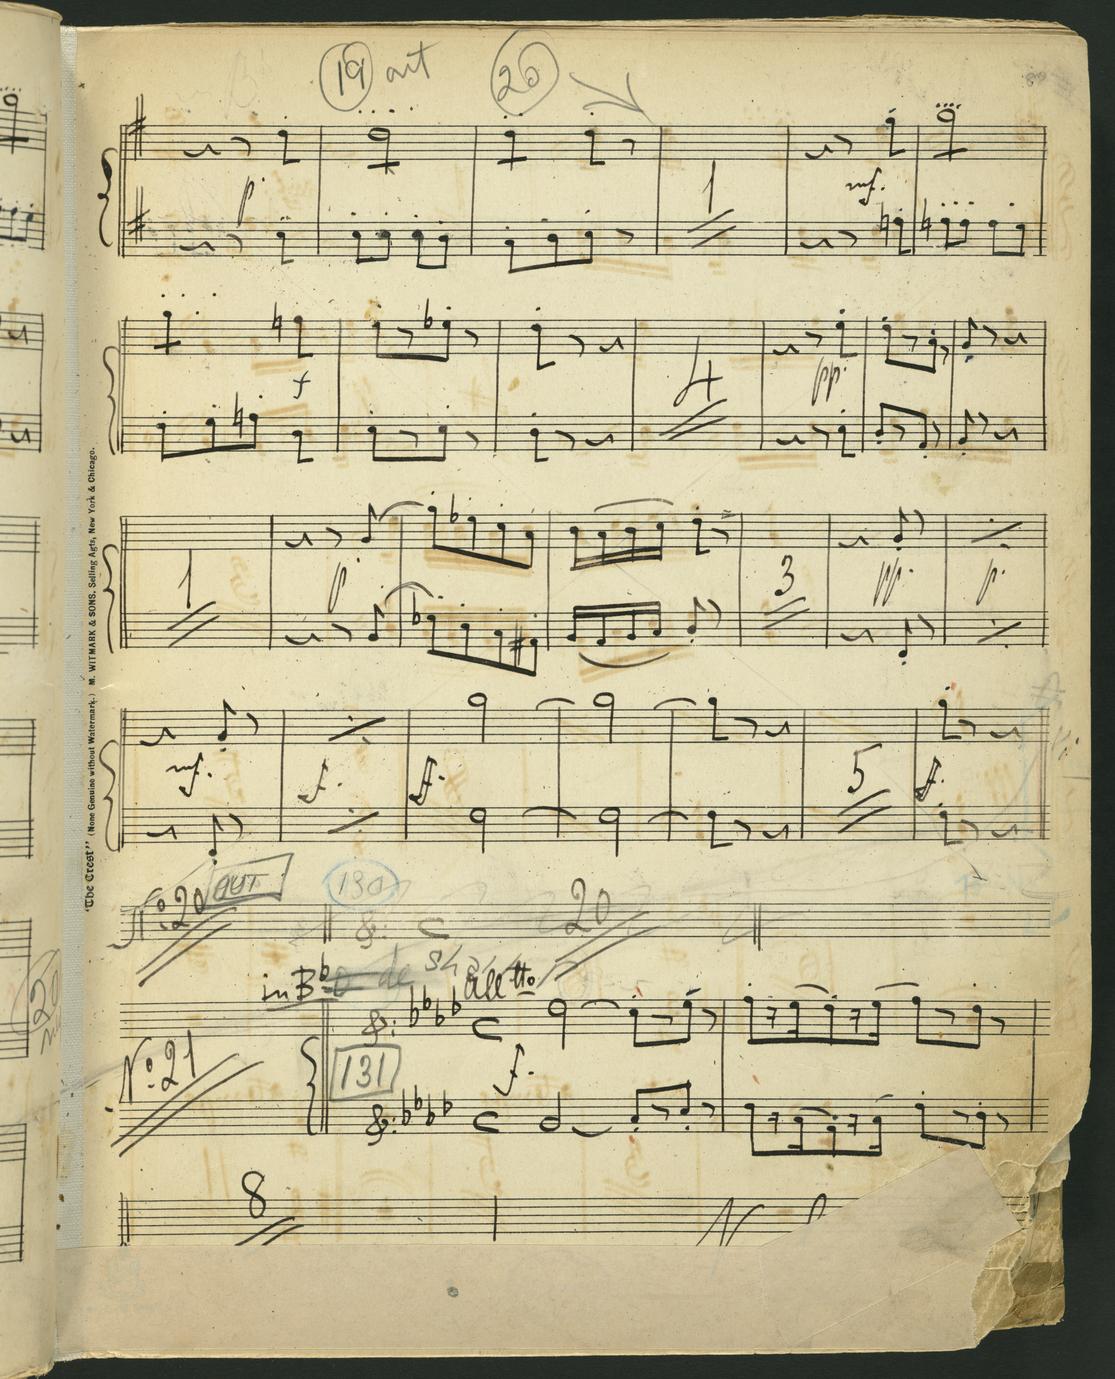 19 out 20
p. 1 mf.
f 4 pp.
1 p. 3 pp. p.
mf. f. ff. 5 ff.
No. 20 OUT 130 20
in Bb All tto
No. 21 131 f.
8
"The Crest" (None Genuine without Watermark.) M. WITMARK & SONS, Selling Agts, New York & Chicago.